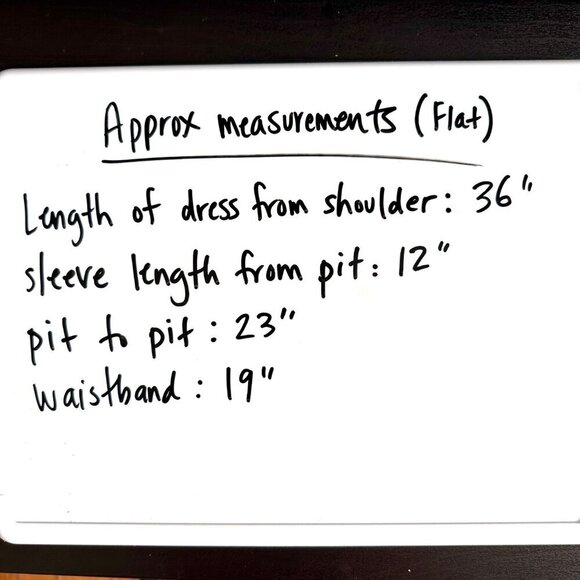 Approx measurements (Flat)
Length of dress from shoulder: 36"
sleeve length from pit: 12"
pit to pit: 23"
waistband: 19"